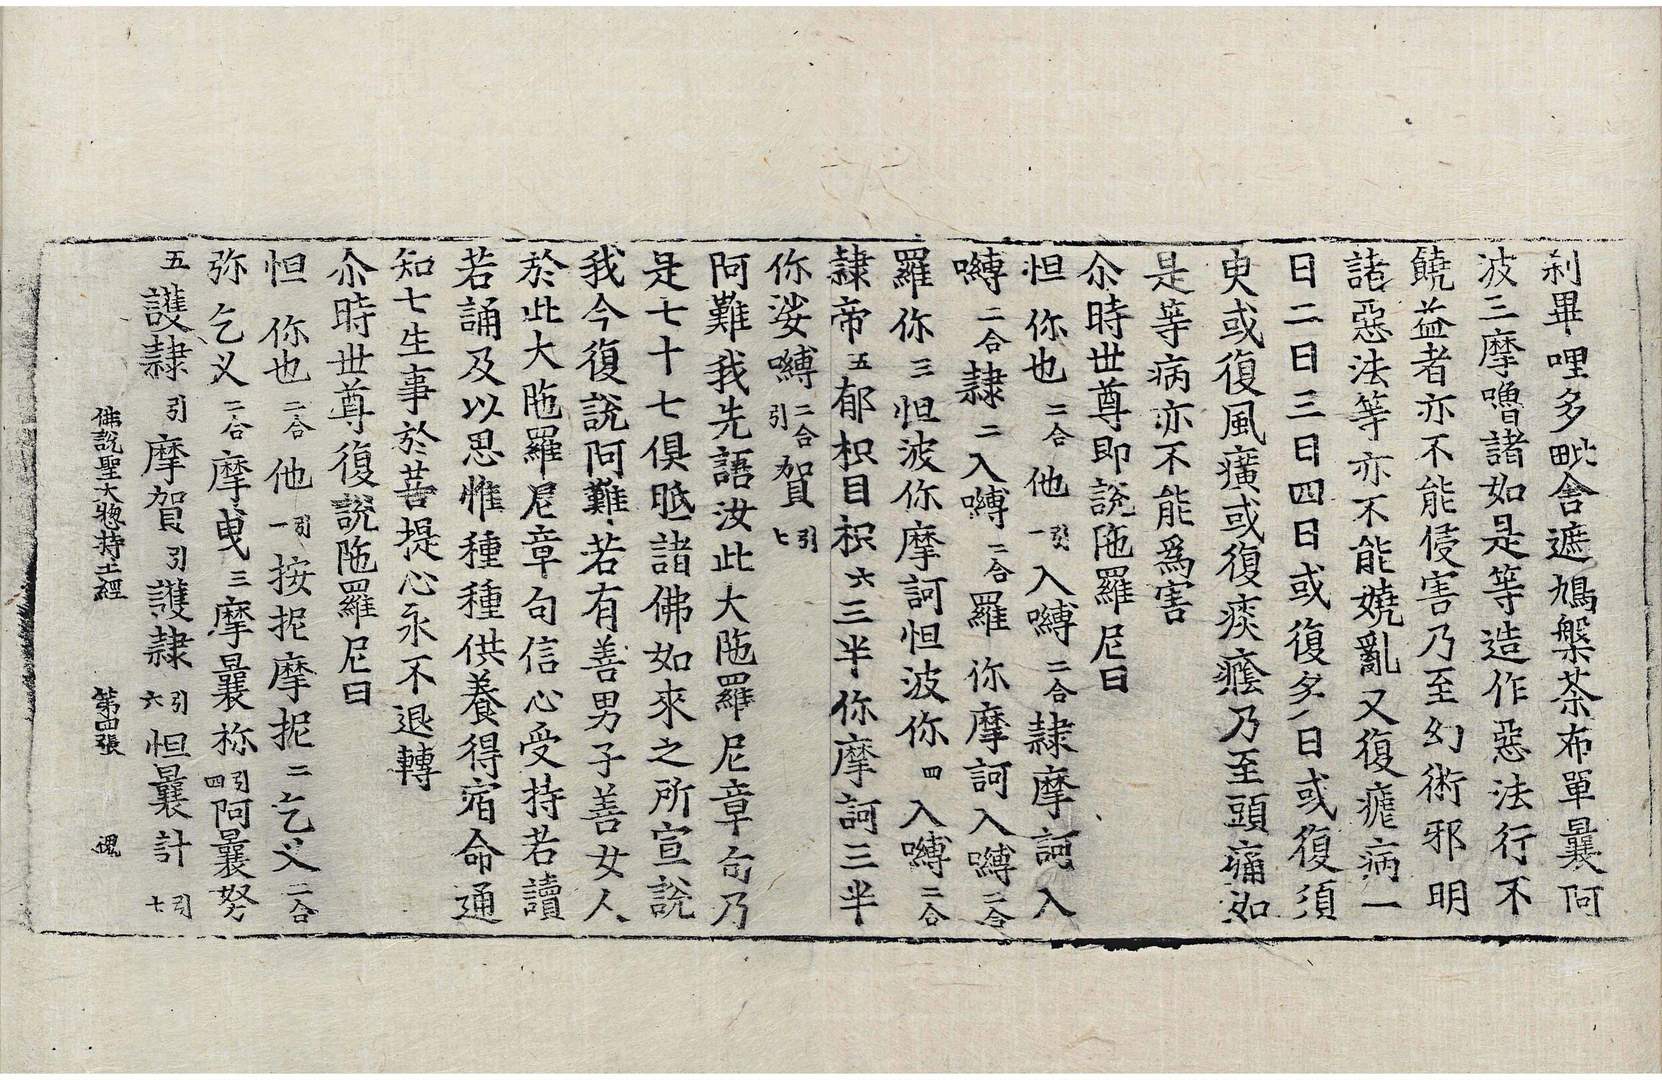 剎畢哩多毗舍遮鳩槃茶布單曩阿
波三摩嚕諸如是等造作惡法行不
饒益者亦不能侵害乃至幻術邪明
諸惡法等亦不能嬈亂又復瘧病一
日二日三日四日或復多日或復須
㬰或復風癀或復痰癊乃至頭痛如
是等病亦不能爲害
尒時世尊即說陁羅尼曰
怛你也二合他引一入嚩二合隸摩訶入
嚩二合隸二入嚩二合羅你摩訶入嚩二合
羅你三怛波你摩訶怛波你四入嚩二合
隸帝五郁枳目枳六三半你摩訶三半
你娑嚩二合引賀引七
阿難我先語汝此大陁羅尼章句乃
是七十七俱胝諸佛如來之所宣說
我今復說阿難若有善男子善女人
於此大陁羅尼章句信心受持若讀
若誦及以思惟種種供養得宿命通
知七生事於菩提心永不退轉
尒時世尊復說陁羅尼曰
怛你也二合他引一按抳摩抳二乞义二合
弥乞义二合摩曳三摩曩祢引四阿曩努
五護隸引摩賀引護隸引六怛曩計引七
佛說聖大惣持王經 第四張 槐